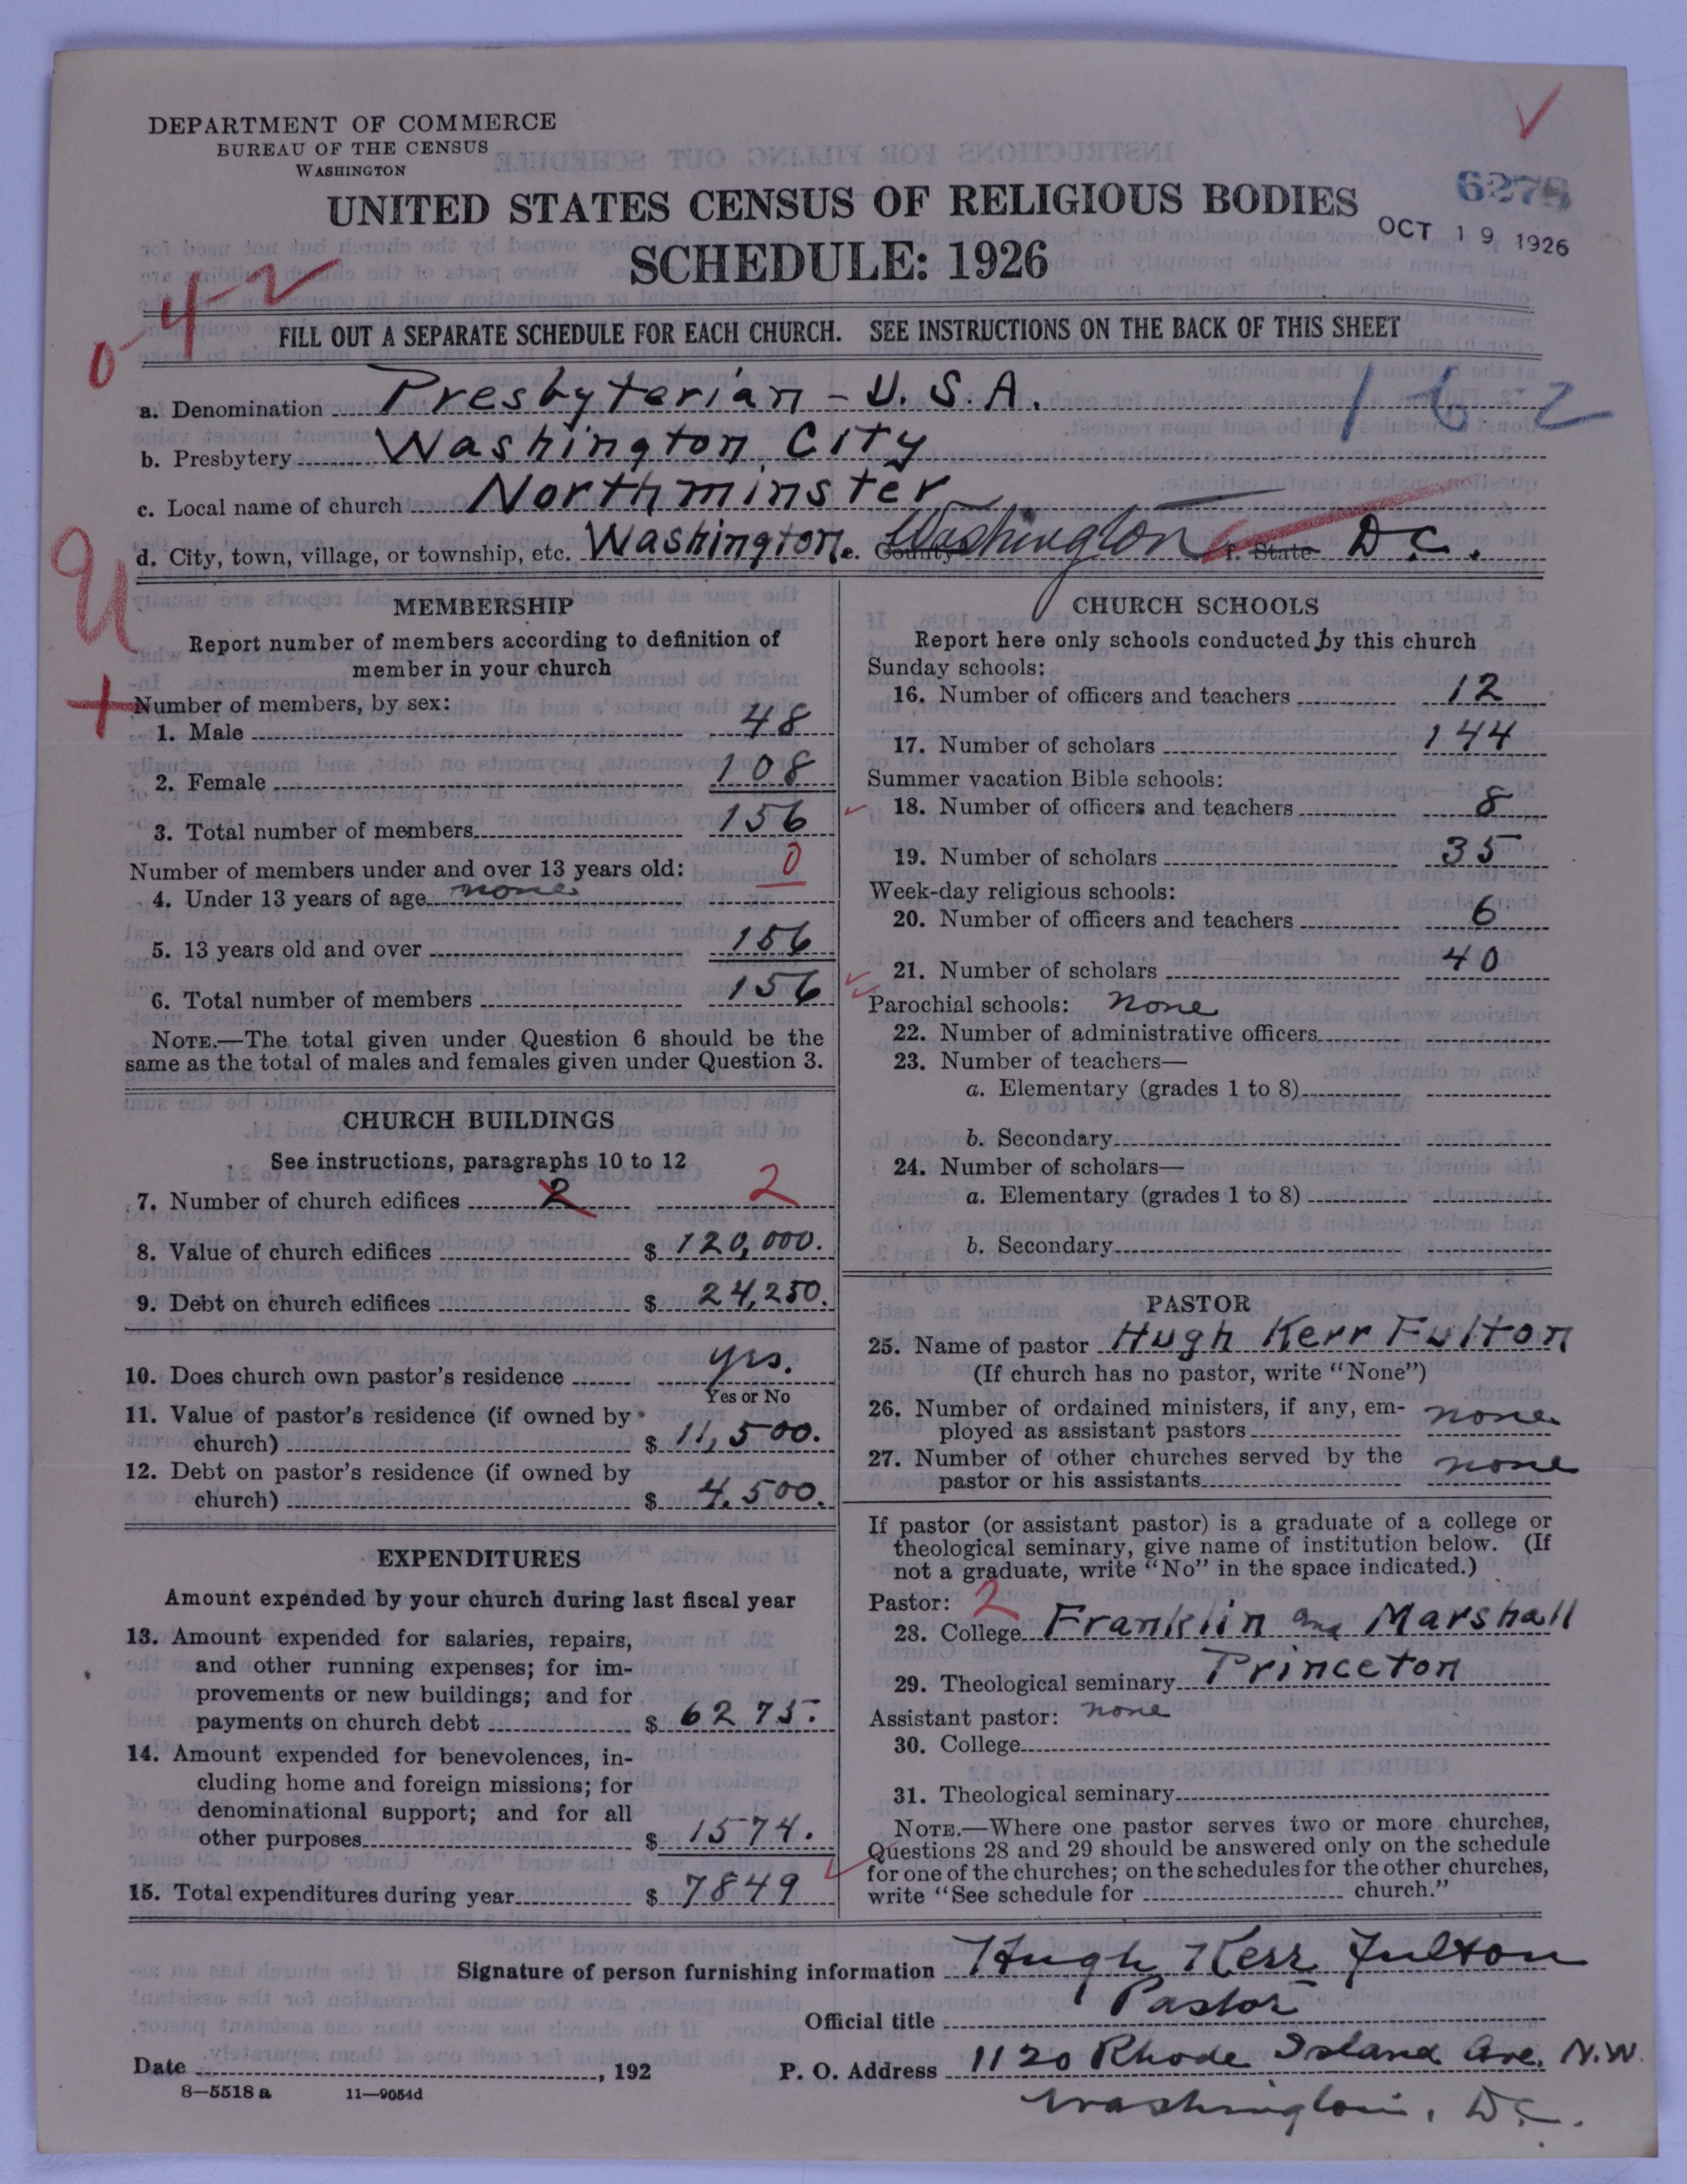 DEPARTMENT OF COMMERCE
BUREAU OF THE CENSUS
WASHINGTON
UNITED STATES CENSUS OF RELIGIOUS BODIES
SCHEDULE: 1926
OCT 19 1926
042
FILL OUT A SEPARATE SCHEDULE FOR EACH CHURCH. SEE INSTRUCTIONS ON THE BACK OF THIS SHEET
a. Denomination Presbyterian - U.S.A. 162
b. Presbytery Washington City
c. Local name of church Northminster
d. City, town, village, or township, etc. Washington e. County Washington f. State D.C.
MEMBERSHIP
Report number of members according to definition of
member in your church
Number of members, by sex:
1. Male 48
2. Female 108
3. Total number of members 156
Number of members under and over 13 years old: 0
4. Under 13 years of age none
5. 13 years old and over 156
6. Total number of members 156
NOTE.—The total given under Question 6 should be the
same as the total of males and females given under Question 3.
CHURCH BUILDINGS
See instructions, paragraphs 10 to 12
7. Number of church edifices 2 2
8. Value of church edifices $ 120,000.
9. Debt on church edifices $ 24,250.
10. Does church own pastor's residence yes.
Yes or No
11. Value of pastor's residence (if owned by
church) $ 11,500.
12. Debt on pastor's residence (if owned by
church) $ 4,500.
EXPENDITURES
Amount expended by your church during last fiscal year
13. Amount expended for salaries, repairs,
and other running expenses; for im-
provements or new buildings; and for
payments on church debt $ 6275.
14. Amount expended for benevolences, in-
cluding home and foreign missions; for
denominational support; and for all
other purposes $ 1574.
15. Total expenditures during year $ 7849
CHURCH SCHOOLS
Report here only schools conducted by this church
Sunday schools:
16. Number of officers and teachers 12
17. Number of scholars 144
Summer vacation Bible schools:
18. Number of officers and teachers 8
19. Number of scholars 35
Week-day religious schools:
20. Number of officers and teachers 6
21. Number of scholars 40
Parochial schools: none
22. Number of administrative officers
23. Number of teachers—
a. Elementary (grades 1 to 8)
b. Secondary
24. Number of scholars—
a. Elementary (grades 1 to 8)
b. Secondary
PASTOR
25. Name of pastor Hugh Kerr Fulton
(If church has no pastor, write "None")
26. Number of ordained ministers, if any, em-
ployed as assistant pastors none
27. Number of other churches served by the
pastor or his assistants none
If pastor (or assistant pastor) is a graduate of a college or
theological seminary, give name of institution below. (If
not a graduate, write "No" in the space indicated.)
Pastor: 2
28. College Franklin and Marshall
29. Theological seminary Princeton
Assistant pastor: none
30. College
31. Theological seminary
NOTE.—Where one pastor serves two or more churches,
Questions 28 and 29 should be answered only on the schedule
for one of the churches; on the schedules for the other churches,
write "See schedule for church."
Signature of person furnishing information Hugh Kerr Fulton
Official title Pastor
Date , 192 P. O. Address 1120 Rhode Island Ave. N.W.
8—5518 a 11—9054d
Washington, D.C.